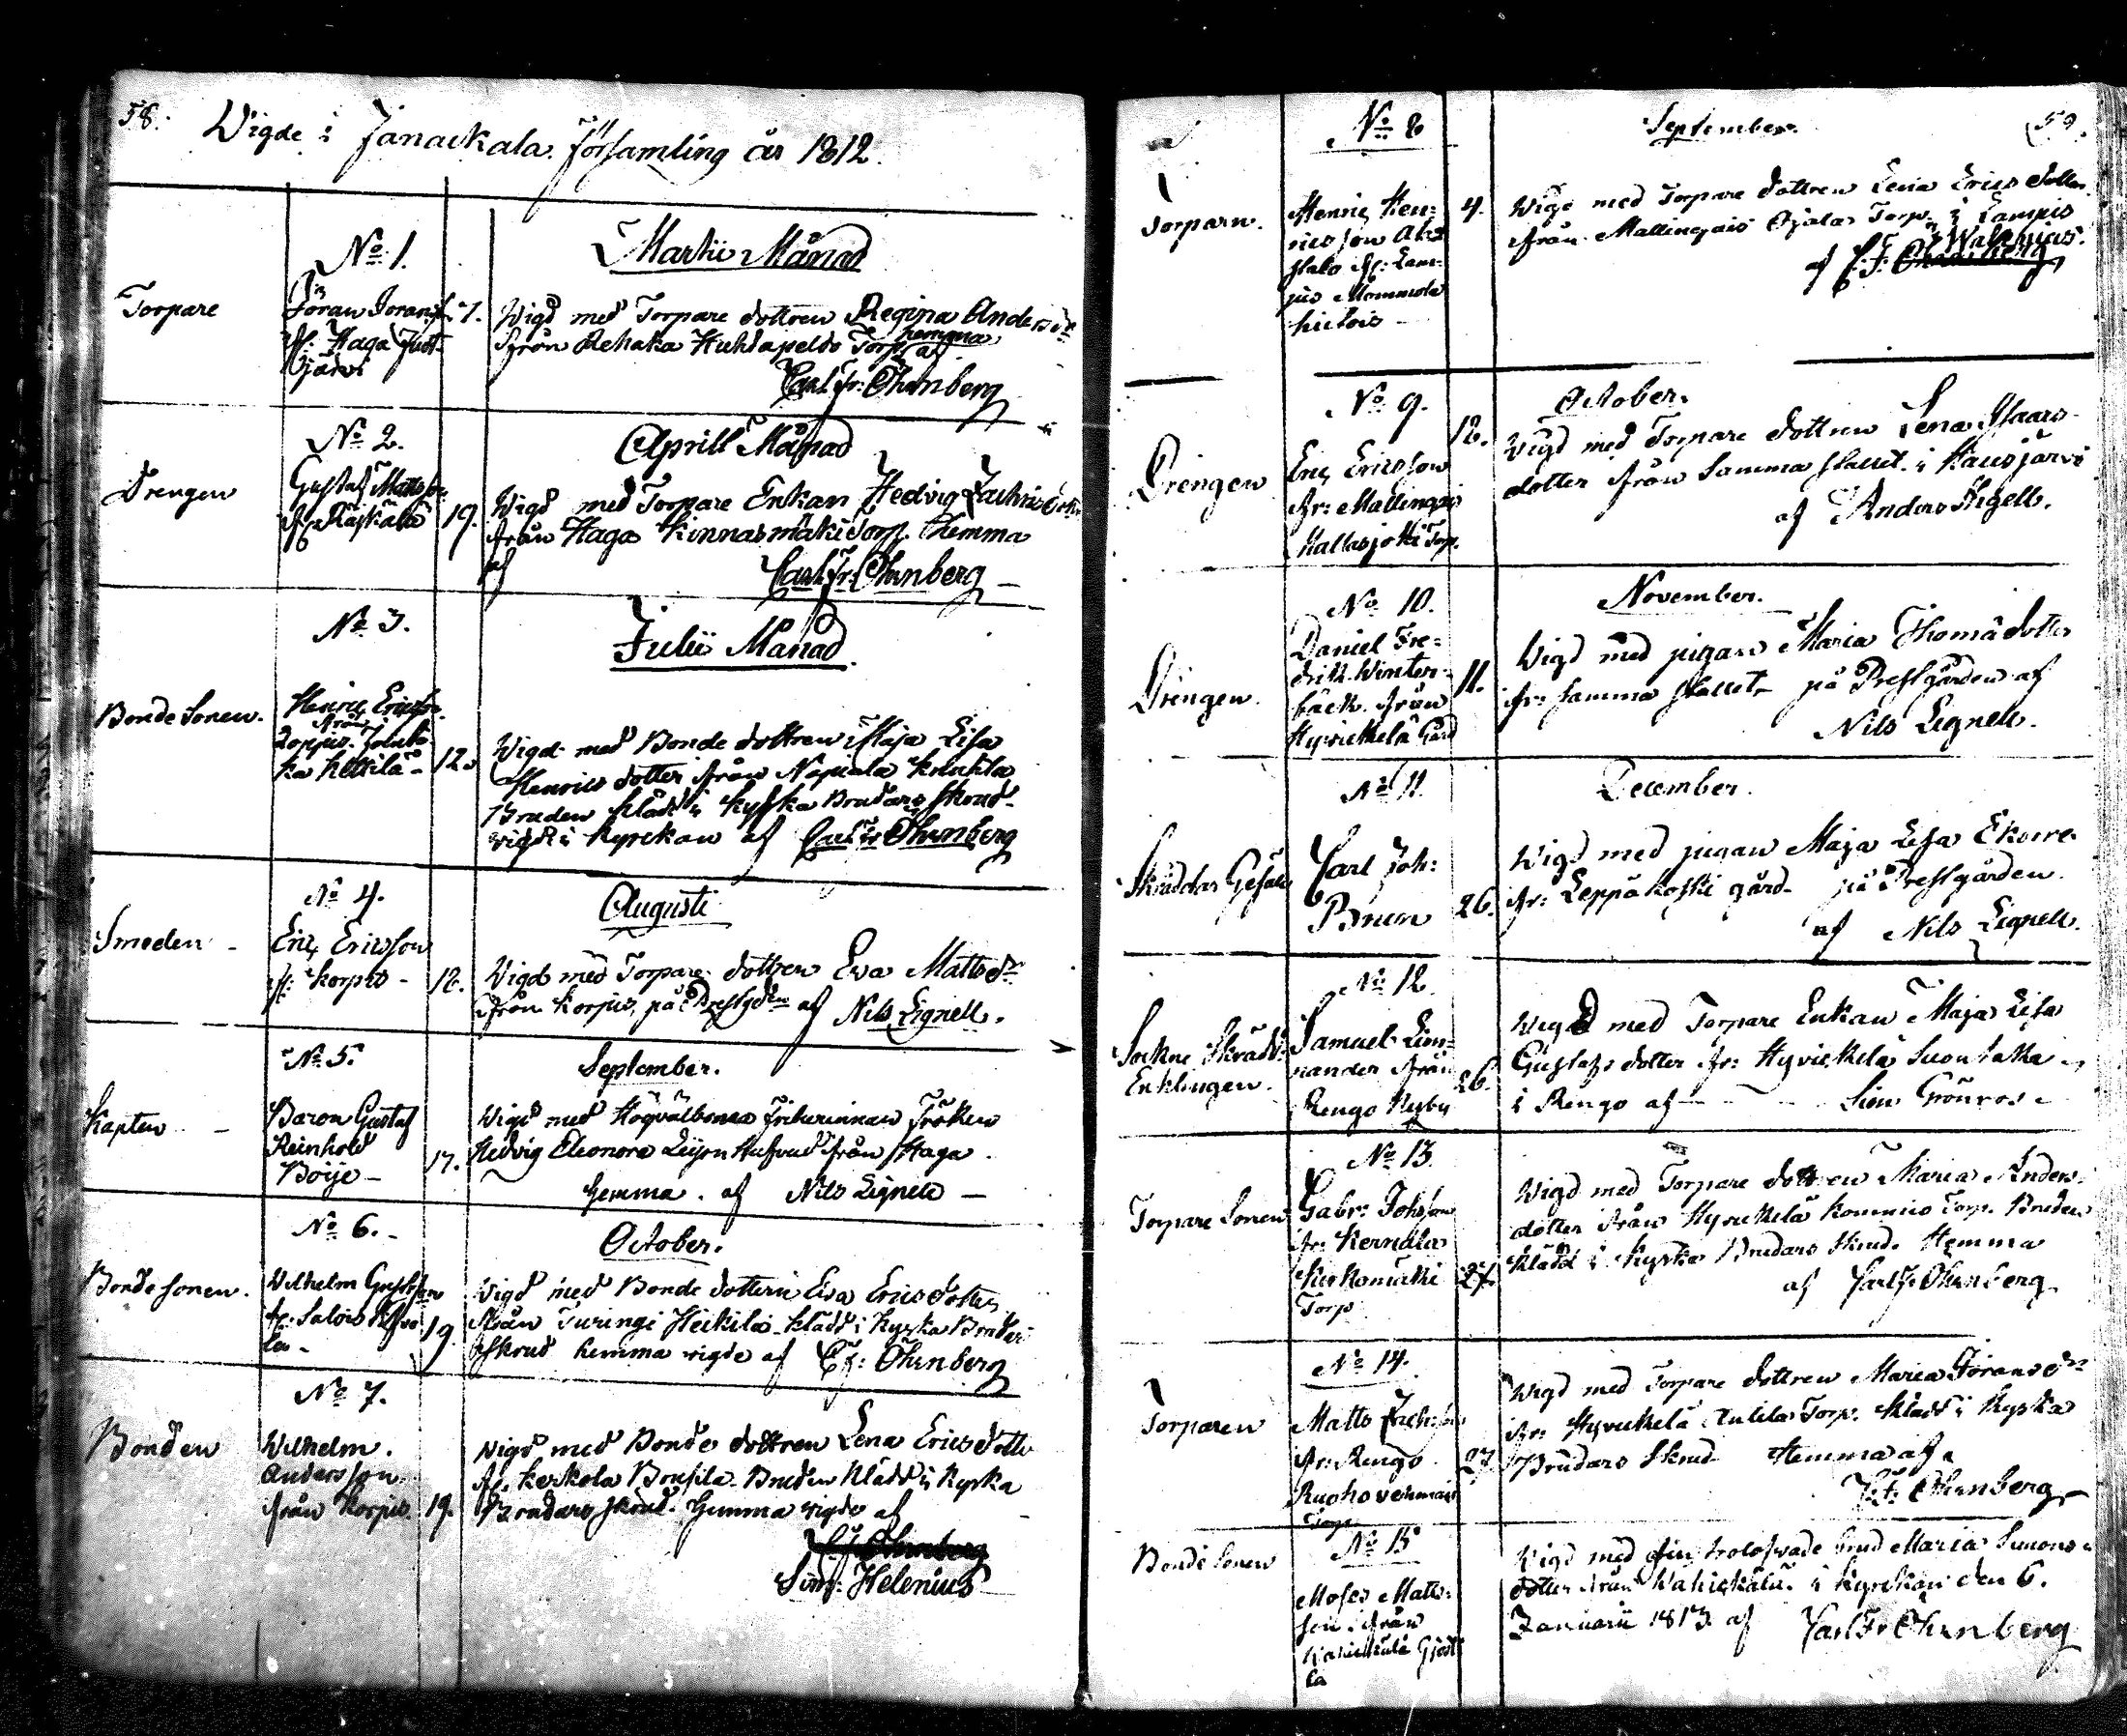 58.
Wigde i Janackala Församling år 1812.
No 1.
Martii Månad
Torpare
Jöran Jorans.
fr: Haga Just
järvi
7.
Wigd med Torpare dottren Regina Anders dr
från Rehaka Huhdapeldo Torp hemma af
Carl Fr: Öhrnberg
No 2.
Aprill Månad
Drengen
Gustaf Mattsson
fr Räikälä
19.
Wigd med Torpare Enkan Hedvig Zachris dotr
från Haga Kinnasmäki Torp. Hemma
af
Carl Fr: Öhrnberg
No 3.
Julii Månad.
Bonde Sonen.
Henric Ericsson
från
Loppis
ka Kettilä
12.
Wigd med Bonde dottren Maja Lisa
Henrics dotter från Napiala Knuutila
Bruden klädd i Kyrka Brudars skrud
wigde i Kyrckan af Carl Fr Öhrnberg
No 4.
Augusti
Smeden -
Eric Ericsson
fr: Korpis -
12.
Wigd med Torpare dottren Eva Matts dr
från Korpis, på Prestgden af Nils Lignell.
No 5.
September.
Kapten -
Baron Gustaf
Reinhold
Böije -
17.
Wigd med Högvälborna Friherinnan Fröken
Hedvig Eleonora Leijon Hufvud från Haga
hemma. af Nils Lignell -
No 6. -
October.
Bonde sonen.
Wilhelm Gustafsson
fr: Salois
la -
19.
Wigd med Bonde dottern Eva Erics dotter
från Turingi Heikilä klädd i Kyrka Brudar
skrud hemma wigde af C F: Öhrnberg
No 7.
Bonden
Wilhelm
Andersson
från Korpis.
19.
Wigd med Bonde dottren Lena Erics dotter
fr. Kerkola Brusila Bruden Klädd i Kyrka
Brudars skrud. Hemma wigde af
C F: Öhrnberg
Sim: Helenius
59.
No 8
September.
Torparn.
Henric Hen-
ricsson
stalo fr: Lam-
pis Mommola
hietois -
4.
Wigd med Torpare dottren Lena Erics dotter
från Mallingais Ojala Torp. i Lampis
af C: F: Öhrnberg Walenius.
No 9.
October.
Drengen
Eric Ericsson
fr: Mallingais
Kallasjoki Torp.
12.
Wigd med Torpare dottren Lena Isaacs
dotter från samma stället i Hausjärvi
af Anders Higell.
No 10.
November.
Drengen.
Daniel Fre-
drik Winter-
bäck från
Hyvickelä Gård
11.
Wigd med pigan Maria Thomædotter
fr: samma stället på Prestgården af
Nils Lignell.
No 11.
December.
Skräddar Gesäll
Carl Joh:
Brun
26.
Wigd med pigan Maja Lisa Ekorre
fr: Leppäkoski gård på Prestgården.
af Nils Lignell.
No 12.
Sockne Skrädd:
Enklingen.
Samuel Lin-
nander från
Rengo Nyby
26.
Wigd med Torpare Enkan Maja Lisa
Gustafs dotter fr: Hyvickelä Suontaka
i Rengo af - - - Sim Grönros -
No 13.
Torpare Sonen
Gabr: Johsson
fr: Kernala
Kirkomäki
Torp
27.
Wigd med Torpare dottren Maria Anders-
dotter från Hyvickelä Kommio Torp. Bruden
klädd i Kyrka Brudars skrud. Hemma
af Carl F. Öhrnberg
No 14.
Torparen
Matts Zach:son
fr: Rengo
Ruohovehmais
Torp
27
Wigd med Torpare dottren Maria Jörans dr
fr: Hyvickelä Anttila Torp. Klädd i Kyrka
Brudars Skrud Hemma af
C: F: Öhrnberg
No 15
Bonde Sonen
Moses Matts-
son från
Wahickälä
la
Wigd med sin trolofwade brud Maria Simons
dotter från Wahickälä. i Kyrckan den 6.
Januarii 1813. af Carl Fr Öhrnberg